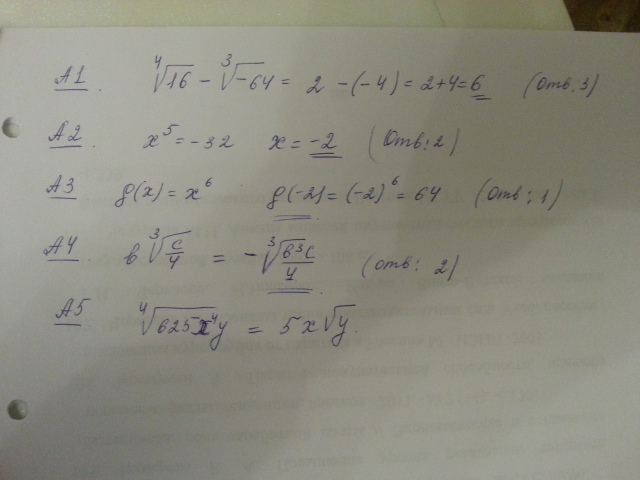 А1. ⁴√16 - ³√-64 = 2 - (-4) = 2+4 = 6 (Отв. 3)
А2. x⁵ = -32 x = -2 (Отв: 2)
А3 g(x) = x⁶ g(-2) = (-2)⁶ = 64 (Отв: 1)
А4 в ³√(c/4) = - ³√(в³c/4) (отв: 2)
А5 ⁴√(625x⁴y) = 5x√y.